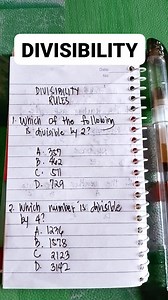 DIVISIBILITY
DIVISIBILITY
RULES
1. Which of the following
is divisible by 2?
A. 357
B. 462
C. 511
D. 729
2. Which number is divisible
by 4?
A. 1236
B. 1578
C. 2123
D. 3142